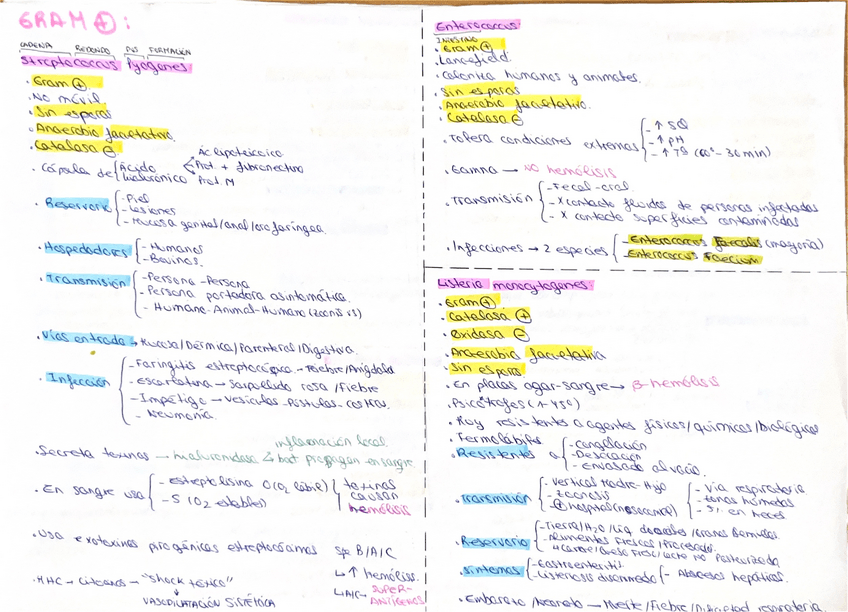 GRAM ⊕:
CADENA REDONDO PUS FORMACIÓN
Streptococcus Pyógenes:
· Gram ⊕.
· No móvil.
· Sin esporas
· Anaerobio facultativo.
· Catalasa ⊖
· Cápsula de Ácido hialurónico
Ac lipoteicoico
Prot. M
· Reservorio
- Piel
- Lesiones
- Mucosa genital/anal/orofaríngea.
· Hospedadores
- Humanos
- Bovinos.
· Transmisión
- Persona-Persona
- Persona portadora asintomática.
- Humano-Animal-Humano
· Vías entrada → Mucosa/Dérmica/Parenteral/Digestiva
· Infección
- Faringitis estreptocócica → Fiebre/Amígdala
- Escarlatina → Sarpullido rosa/Fiebre
- Impétigo → Vesículas-Pústulas-costras.
- Neumonía.
inflamación local
· Secreta toxinas → hialuronidasa bact propagan en sangre
· En sangre usa
- estreptolisina O (O₂ lábil)
- S (O₂ estables)
toxinas causan hemólisis
· Usa exotoxinas pirogénicas estreptocócicas Spe B/A/C
↑ hemólisis.
SUPER-ANTÍGENOS
"shock tóxico"
VASODILATACIÓN SISTÉMICA
Enterococcus:
INTESTINO
· Gram ⊕
· Lancefield:
· Coloniza humanos y animales.
· Sin esporas
· Anaerobio facultativo.
· Catalasa ⊖
· Tolera condiciones extremas
- ↑ pH
- ↑ Tª (60º-30 min)
· Gamma → NO hemólisis
· Transmisión
- Fecal-oral.
- X contacto fluidos de personas infectadas
- X contacto superficies contaminadas
· Infecciones → 2 especies
- Enterococcus Faecalis (mayoría)
- Enterococcus Faecium
Listeria monocytogenes:
· Gram ⊕
· Catalasa ⊕
· Oxidasa ⊖
· Anaerobio facultativa
· Sin esporas
· En placas agar-sangre → β-hemólisis
· Muy resistentes a agentes físicos/químicos/biológicos
· Termolábiles
· Resistentes a
- Congelación
- Desecación
- Envasado al vacío.
· Transmisión
- Vertical Madre-Hijo
- Zoonosis
- Vía respiratoria
- en heces
· Reservorio
· Síntomas
- Gastroenteritis.
- Listeriosis
- Abscesos hepáticos.
· Embarazo/Neonato → Muerte/Fiebre/Dificultad respiratoria